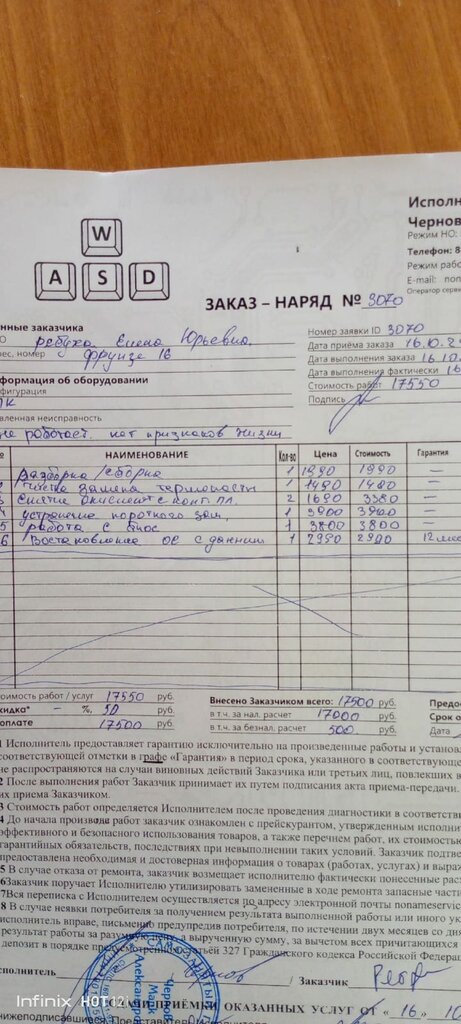 Исполн
Чернов
Режим НО:
Телефон: 8
Режим рабо
E-mail: non
Оператор серви
W
A S D
ЗАКАЗ – НАРЯД № 3070
нные заказчика
Елена Юрьевна
рес, номер Фрунзе 16
формация об оборудовании
фигурация
ПК
вленная неисправность
не работает, нет признаков жизни
Номер заявки ID 3070
Дата приёма заказа 16.10.2
Дата выполнения заказа 16.10.
Дата выполнения фактически 16
Стоимость работ 17550
Подпись
№ НАИМЕНОВАНИЕ Кол-во Цена Стоимость Гарантия
Разборка/сборка 1 1990 1990 —
Чистка замена термопасты 1 1480 1480 —
2 1690 3380 —
устранение короткого зам. 1 3900 3900 —
5 работа с 1 3800 3800 —
6 ОС с данными 1 2990 12 мес
тоимость работ / услуг 17550 руб.
кидка* – %, 50 руб.
оплате 17500 руб.
Внесено Заказчиком всего: 17500 руб.
в т.ч. за нал. расчет 17000 руб.
в т.ч. за безнал. расчет 500 руб.
Предо
Срок о
Дата
1 Исполнитель предоставляет гарантию исключительно на произведенные работы и установ
соответствующей отметки в графе «Гарантия» в период срока, указанного в соответствующе
не распространяются на случаи виновных действий Заказчика или третьих лиц, повлекших в
2 После выполнения работ Заказчик принимает их путем подписания акта приема-передачи.
их прием Заказчиком.
3 Стоимость работ определяется Исполнителем после проведения диагностики в соответств
4 До начала производства работ заказчик ознакомлен с прейскурантом, утвержденным исполни
эффективного и безопасного использования товаров, а также перечнем работ, их стоимость
гарантийных обязательств, последствиях при невыполнении таких условий. Заказчик подтве
предоставлена необходимая и достоверная информация о товарах (работах, услугах) и выраз
5 В случае отказа от ремонта, заказчик возмещает исполнителю фактически понесенные рас
6Заказчик поручает Исполнителю утилизировать замененные в ходе ремонта запасные части
7Вся переписка с Исполнителем осуществляется по адресу электронной почты nonameservic
8 В случае неявки потребителя за получением результата выполненной работы или иного ук
исполнитель вправе, письменно предупредив потребителя, по истечении двух месяцев со дн
результат работы за разумную цену, а вырученную сумму, за вычетом всех причитающихся
депозит в порядке предусмотренном статьёй 327 Гражданского кодекса Российской Федерац
сполнитель Заказчик
АКТ ПРИЕМКИ ОКАЗАННЫХ УСЛУГ ОТ « 16 » 10
нижеподписавшиеся Представитель Исполнителя
Infinix HOT 12i